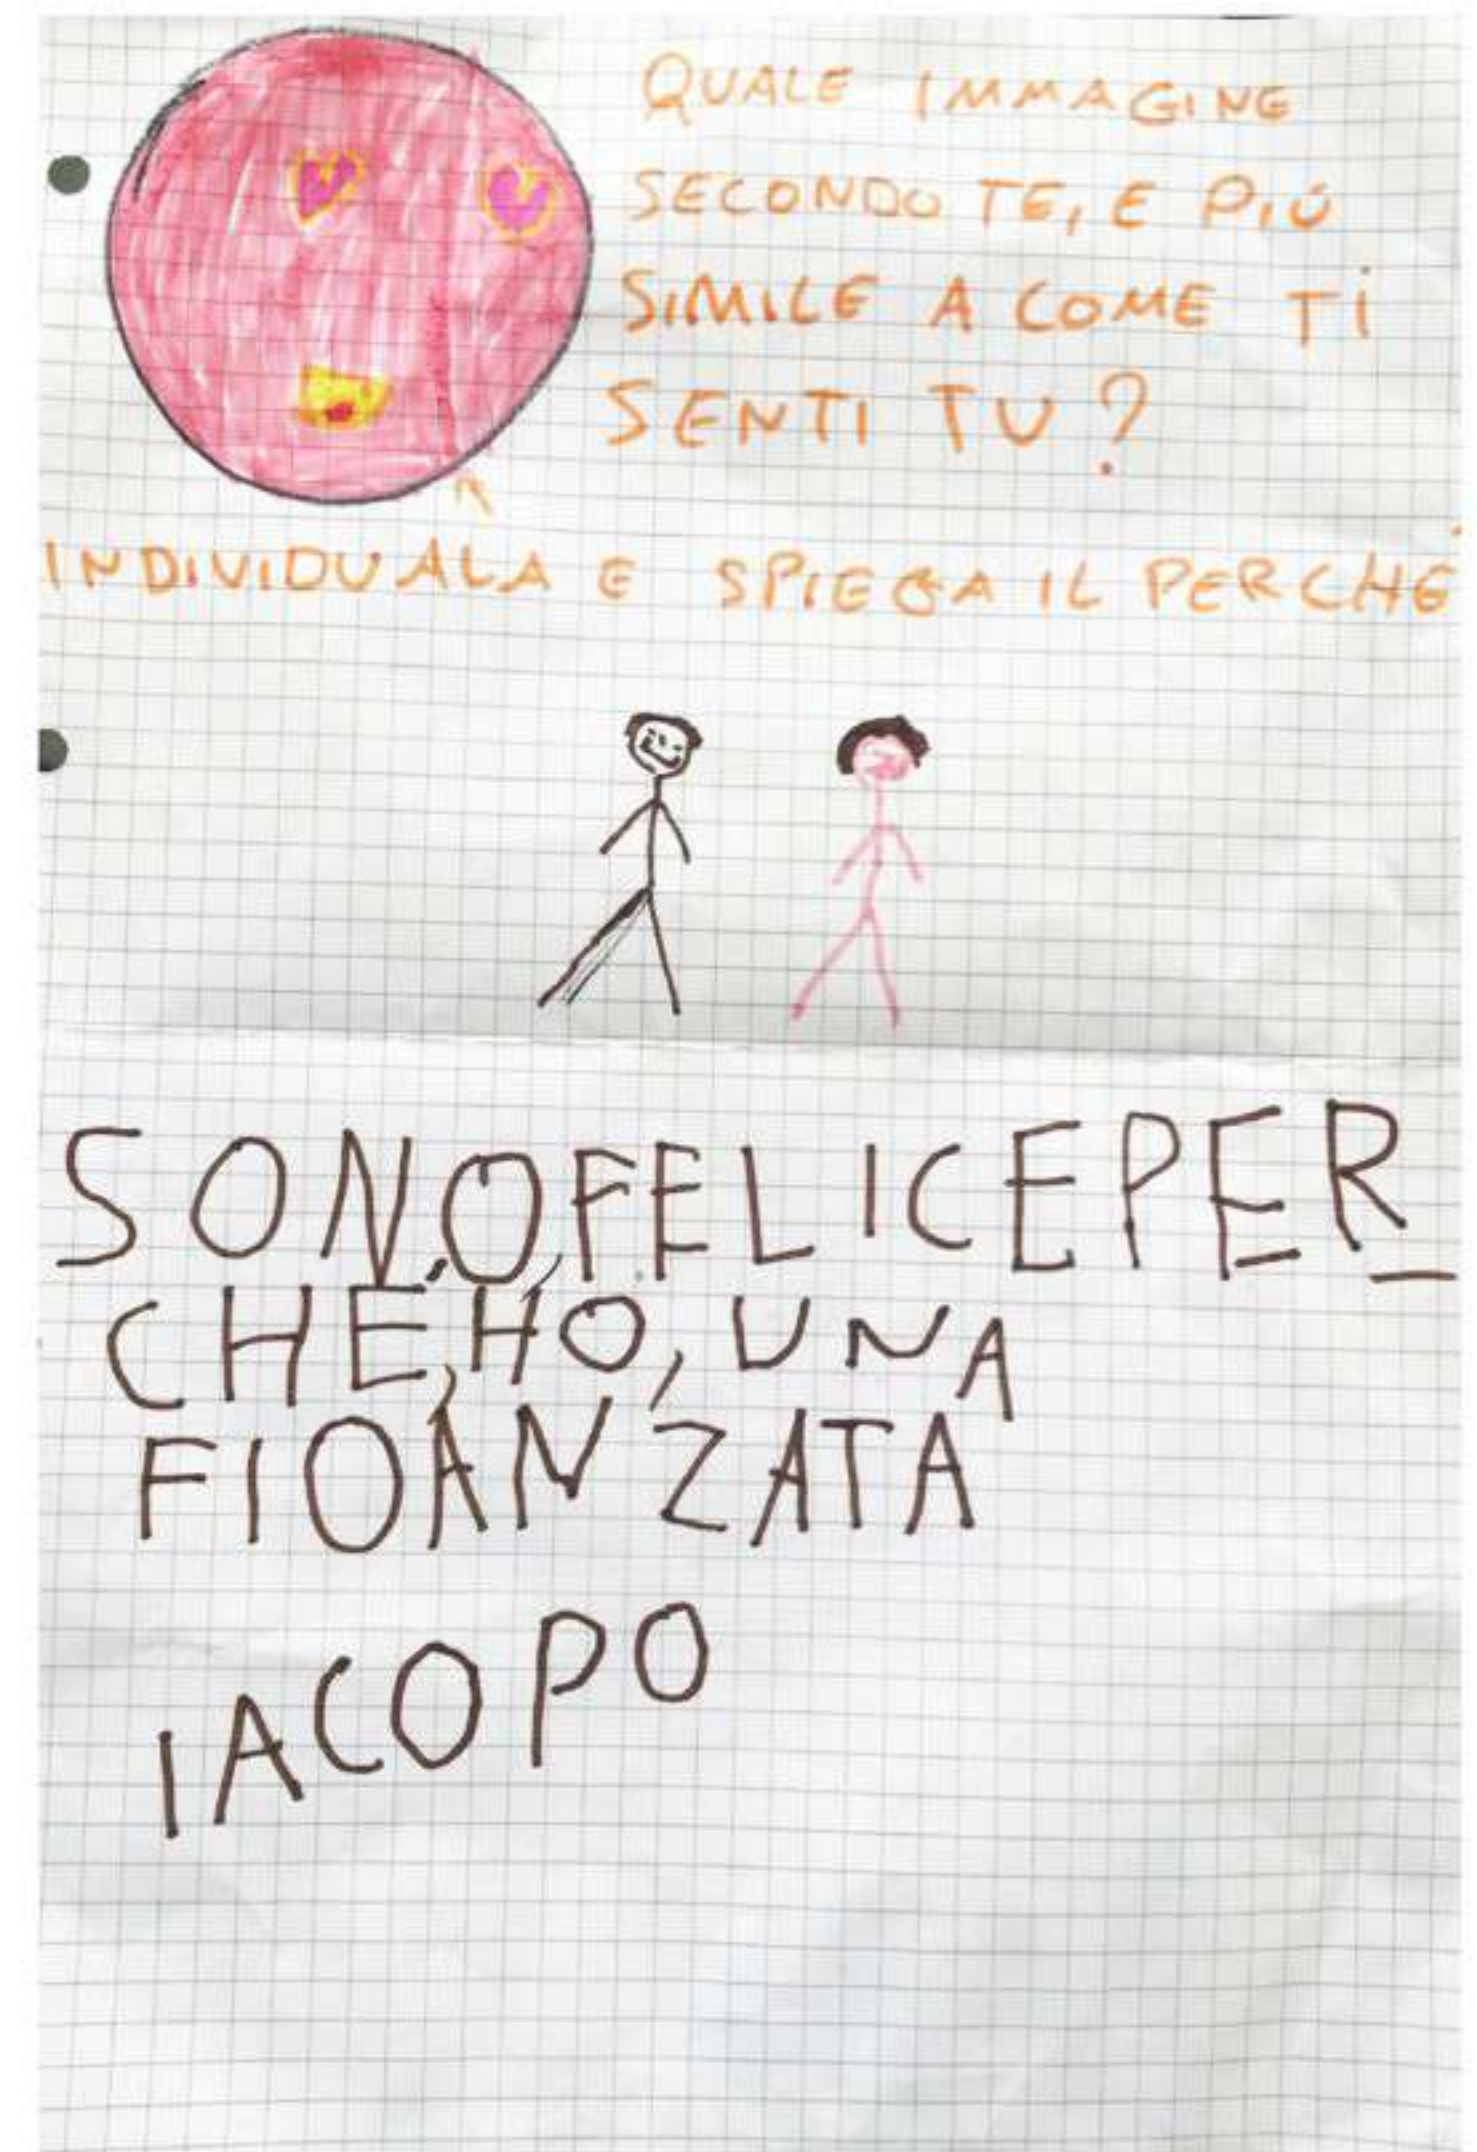 QUALE IMMAGINE
SECONDO TE, E PIÙ
SIMILE A COME TI
SENTI TU?
INDIVIDUALA E SPIEGA IL PERCHÉ
SONO,FELICEPER_
CHE,HO,UNA
FIOANZATA
IACOPO